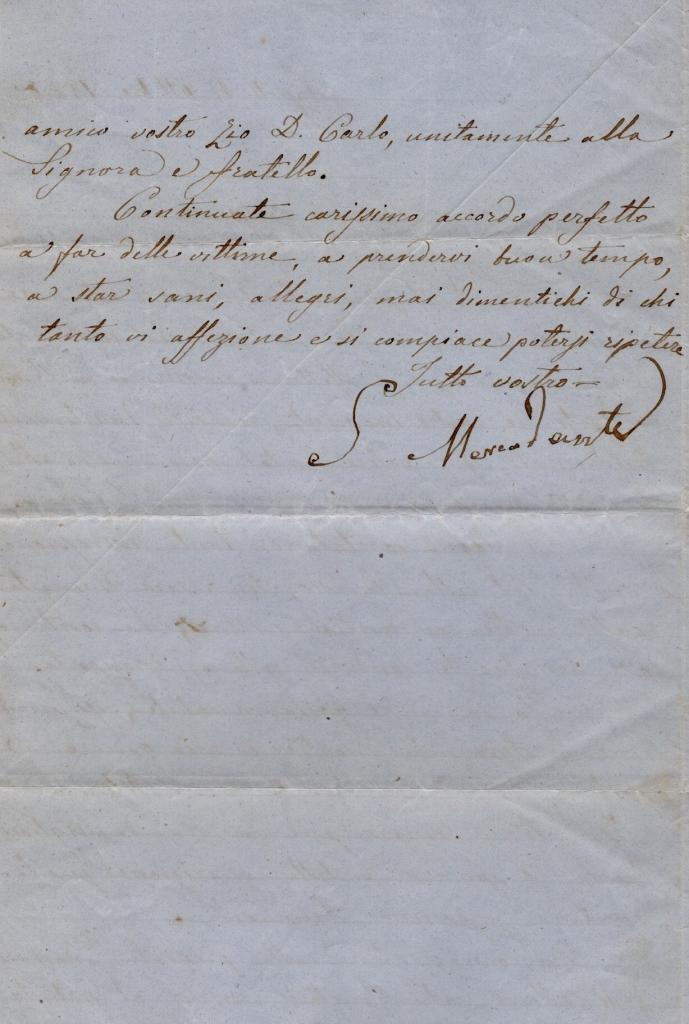 amico vostro Zio D. Carlo, unitamente alla
Signora e fratello.
Continuate carissimo accordo perfetto
a far delle vittime, a prendervi buon tempo,
a star sani, allegri, mai dimentichi di chi
tanto vi affezione e si compiace potersi ripetere
Tutto vostro
S Mercadante